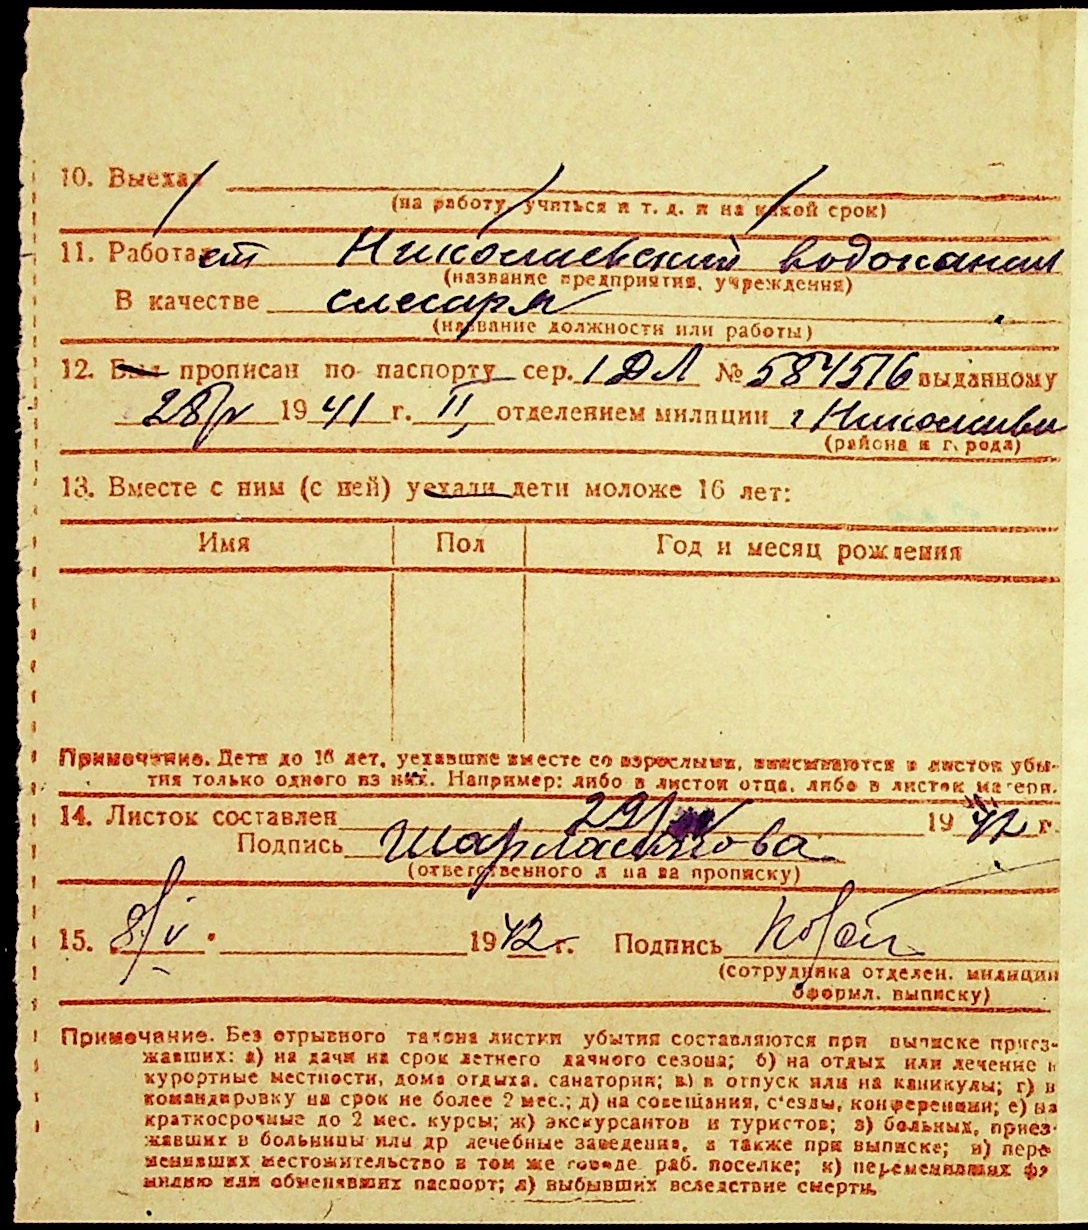 10. Выехал
(на работу, учиться и т. д. и на какой срок)
11. Работает Николаевский водоканал
(название предприятия, учреждения)
В качестве слесаря
(название должности или работы)
12. Был прописан по паспорту сер. 1 ДЛ № 584516 выданному
28/V 1941 г. II отделением милиции г Николаева
(района и города)
13. Вместе с ним (с ней) уехали дети моложе 16 лет:
Имя Пол Год и месяц рождения
Примечание. Дети до 16 лет, уехавшие вместе со взрослыми, вписываются в листок убы-
тия только одного из них. Например: либо в листок отца, либо в листок матери.
14. Листок составлен 29/ 1942 г.
Подпись
(ответственного лица за прописку)
15. 8/V 1942 г. Подпись
(сотрудника отделен. милиции
оформл. выписку)
Примечание. Без отрывного талона листки убытия составляются при выписке приез-
жавших: а) на дачи на срок летнего дачного сезона; б) на отдых или лечение в
курортные местности, дома отдыха, санатории; в) в отпуск или на каникулы; г) в
командировку на срок не более 2 мес.; д) на совещания, с'езды, конференции; е) на
краткосрочные до 2 мес. курсы; ж) экскурсантов и туристов; з) больных, приез-
жавших в больницы или др лечебные заведения, а также при выписке; и) пере
менивших местожительство в том же городе, раб. поселке; к) переменивших фа
милию или обменявших паспорт; л) выбывших вследствие смерти.